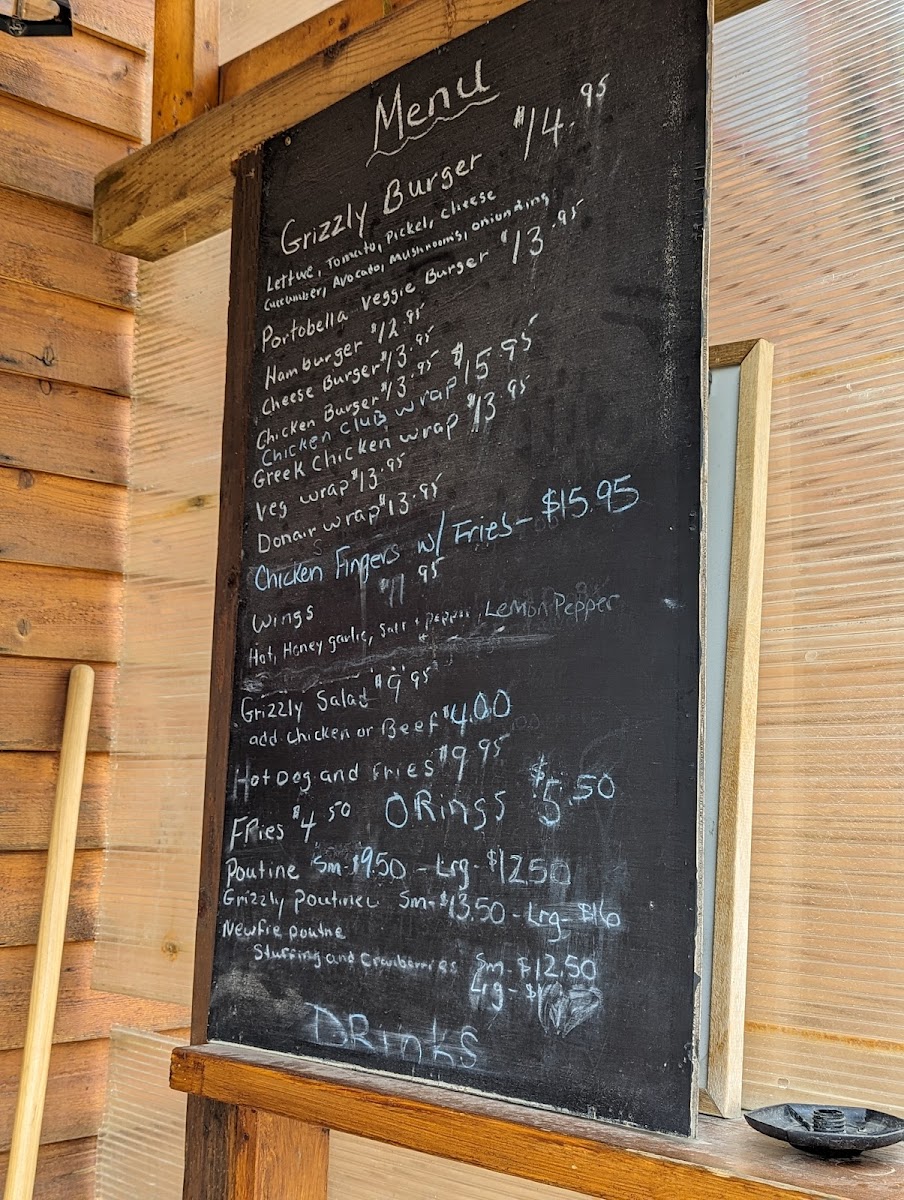 Menu
Grizzly Burger $14.95
Lettuce, Tomato, Pickel, cheese
Cuccumber, Avocado, Mushrooms, onion Ring
Portobella Veggie Burger $13.95
Hamburger $12.95
Cheese Burger $13.95
Chicken Burger $13.95
Chicken Club wrap $15.95
Greek Chicken wrap $13.95
Veg wrap $13.95
Donair wrap $13.95
Chicken Fingers w/ Fries - $15.95
Wings $11.95
Hot, Honey garlic, Salt + Pepper, Lemon Pepper
Grizzly Salad $9.95
add chicken or Beef $4.00
Hot Dog and Fries $9.95
Fries $4.50 ORings $5.50
Poutine Sm-$9.50 - Lrg-$12.50
Grizzly Sm-$13.50 - Lrg-$16
Newfie poutne
Stuffing and Cranberries Sm-$12.50
Lrg-$1
DRinks